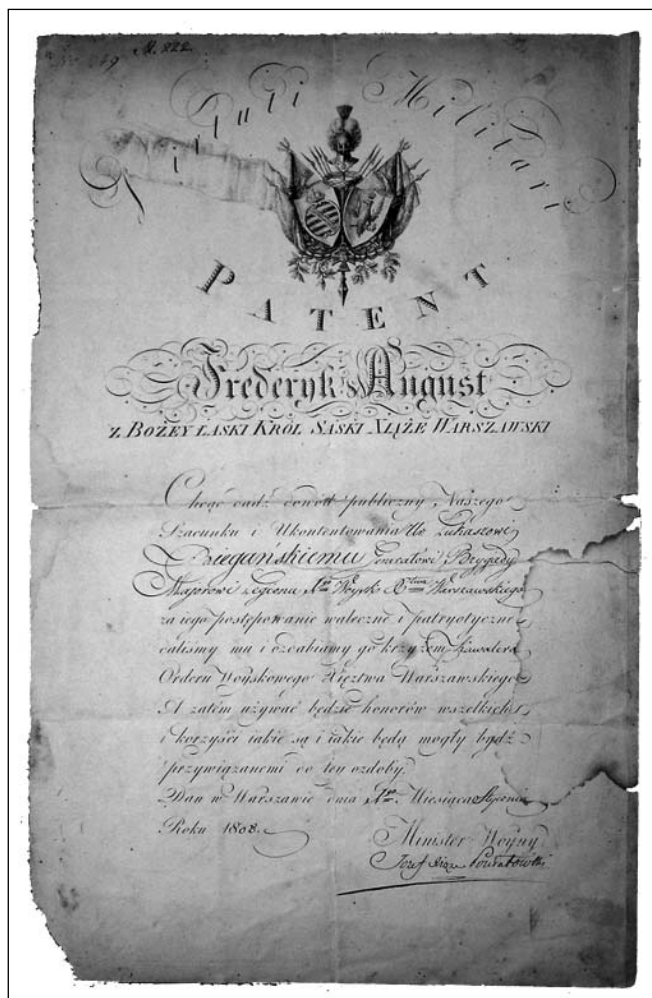 M. 222.
Virtuti Militari
PATENT
Fryderyk August
Z BOŻEY ŁASKI KRÓL SASKI XIĄŻE WARSZAWSKI
Chcąc dadź dowód publiczny Naszego
Szacunku i Ukontentowania Ur Łukaszowi
Biegańskiemu Generałowi Brygady
Majorowi Legionu 1go Woysk Xtwa Warszawskiego
za iego postępowanie waleczne i patryotyczne
daliśmy mu i ozdabiamy go krzyżem Kawalera
Orderu Woyskowego Xięztwa Warszawskiego
A zatém używać będzie honorów wszelkich
i korzyści iakie są i iakie będą mogły bydź
przywiązanemi do tey ozdoby.
Dan w Warszawie dnia 1go Miesiąca Stycznia
Roku 1808.
Minister Woyny
Józef Xiąże Poniatowski